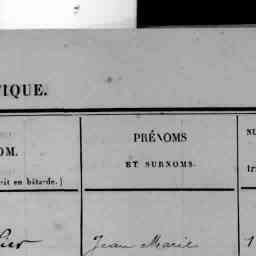 TIQUE.
PRÉNOMS NU
OM. ET SURNOMS.
rit en bâtarde.) tr
Jean Marie 1